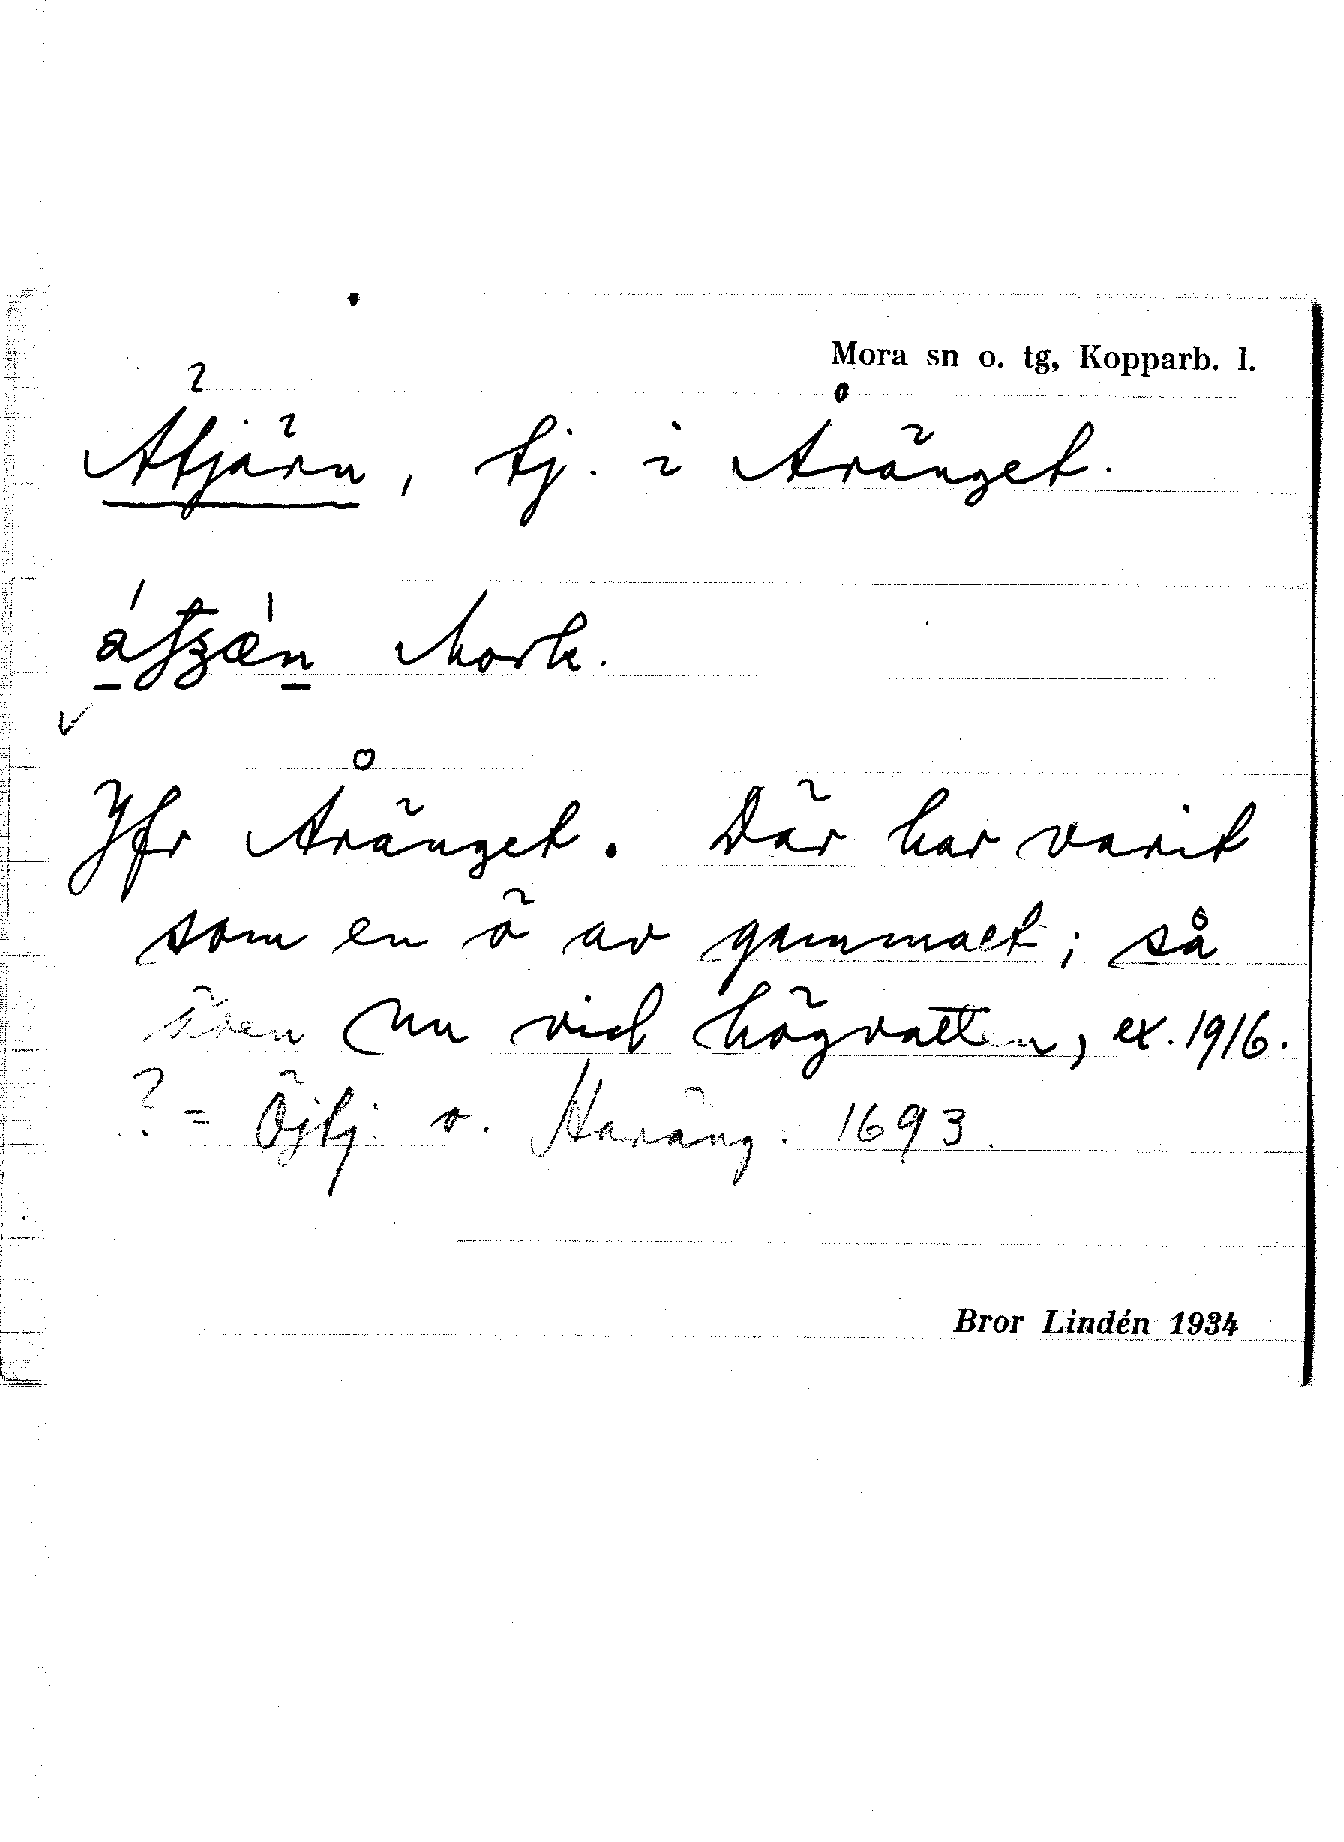 Mora sn o. tg, Kopparb. l.
Ätjärn, tj. i Åränget.
Mork.
Jfr Åränget. Där har varit
som en ö av gammalt; så
även nu vid högvatten, ex. 1916.
? = Öjtj. o. Haräng. 1693.
Bror Lindén 1934